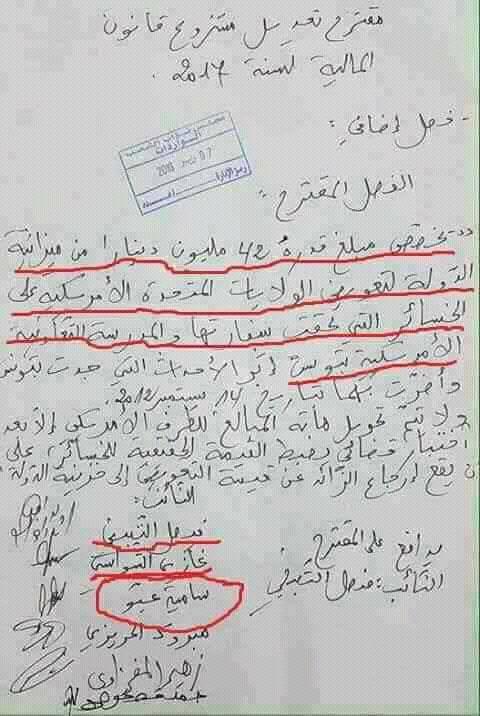 مقترح تعديل مشروع قانون
المالية لسنة 2017.
- فصل إضافي:
مجلس نواب الشعب
الواردات
07
2016
الفصل المقترح:
"تخصص مبلغ قدره 42 مليون دينارا من ميزانية
الدولة لتعويض الولايات المتحدة الأمريكية على
الخسائر التي لحقت سفارتها والمدرسة التعاونية
الأمريكية بتونس إثر الأحداث التي جدت بتونس
وأضرت بهما بتاريخ 14 سبتمبر 2012.
ولا تتم تحويل هاته المبالغ للطرف الأمريكي إلا بعد
اختبار قضائي يضبط القيمة الحقيقية للخسائر على
أن يقع إرجاع الزائد عن قيمة التعويض إلى خزينة الدولة"
النائب:
فيصل التبيني
غازي الشواشي
سامية عبو
مبروك الحريزي
زهير المغزاوي
يدافع على المقترح
النائب: فيصل التبيني